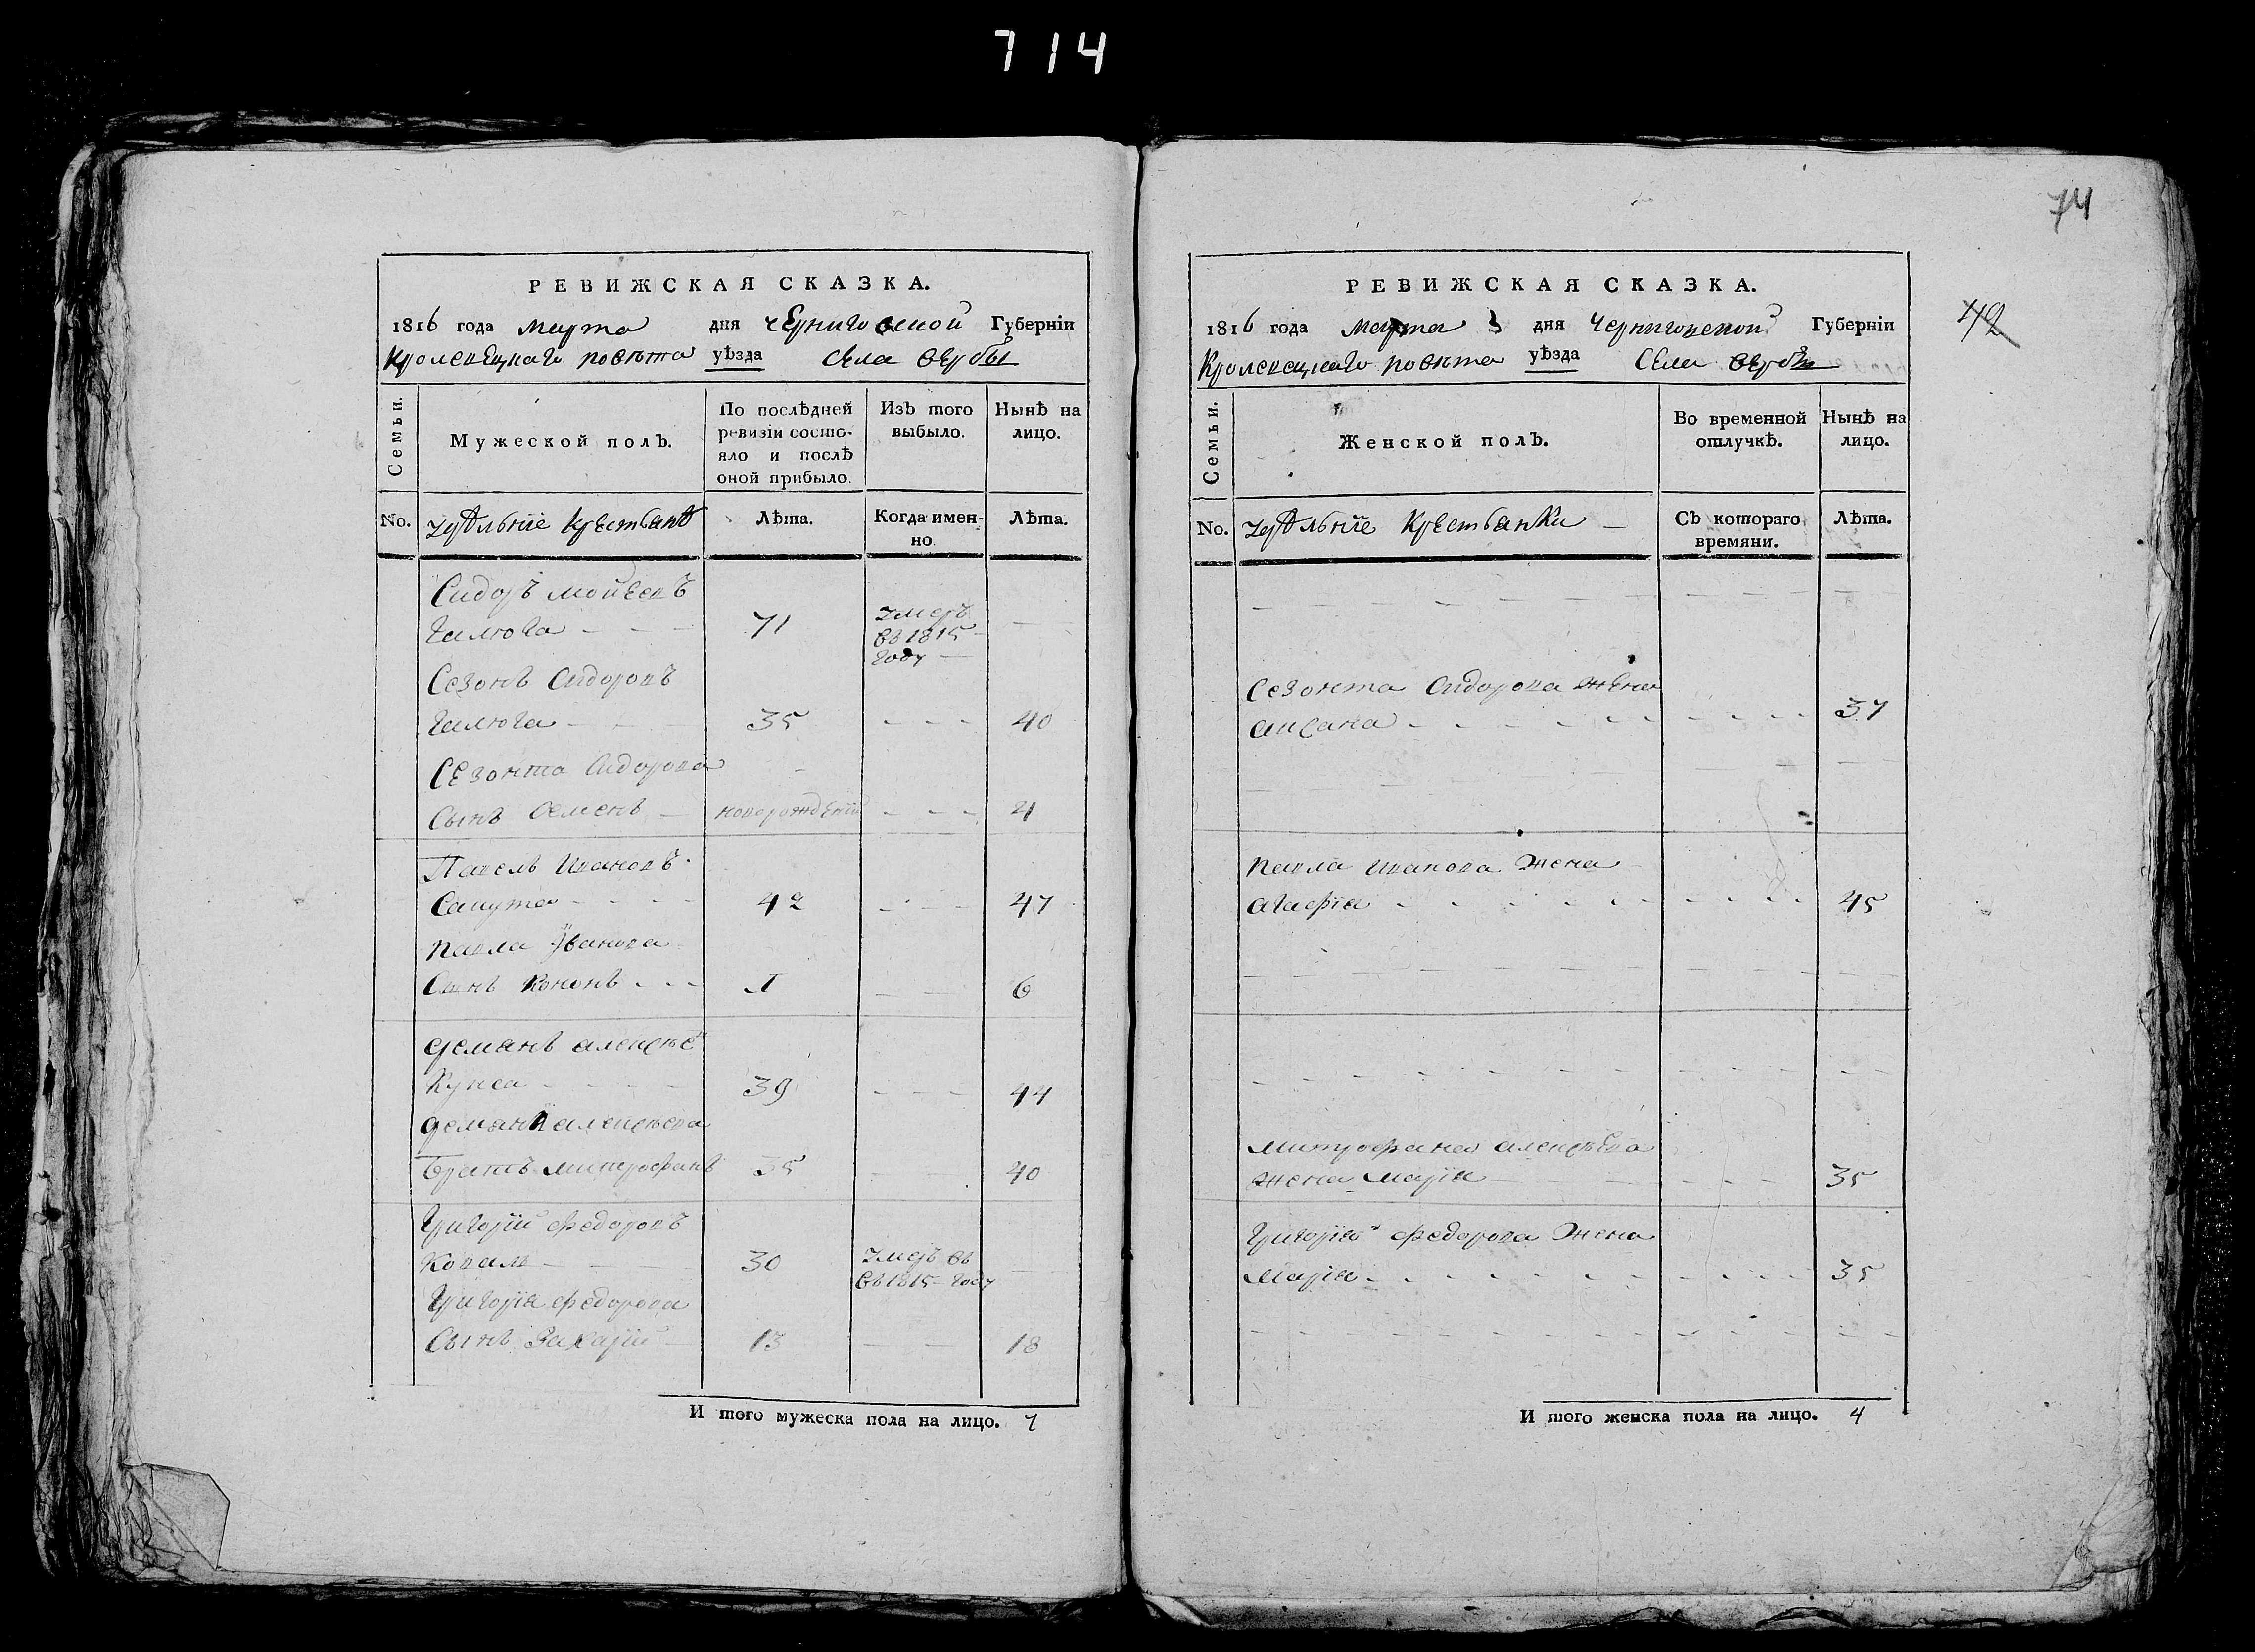 714
РЕВИЖСКАЯ СКАЗКА.
1816 года марта дня Черниговской Губерніи
Кролевецкаго повѣта уѣзда села вербы
Семьи.
Мужеской полъ.
По послѣдней ревизіи состо-
яло и послѣ
оной прибыло.
Изъ того
выбыло.
Нынѣ на
лицо.
No.
удѣльніе крестьанѣ
Лѣта.
Когда имен-
но.
Лѣта.
Сидоръ мойсеевъ
71
умеръ
въ 1815
году
Сезонъ Сидоровъ
35 40
Сезонта Сидорова
сынъ Семенъ новорожденій 4
Павелъ Ивановъ
Сапута 42 47
павла Іванова
Сынъ Кононъ 1 6
демянъ алексѣев
39 44
демяна алексѣева
братъ митрофанъ 35 40
Григорій федоровъ
Коваль 30 умеръ въ
въ 1815 году
Григорія федорова
Сынъ Захарій 13 18
И того мужеска пола на лицо. 7
74
42
РЕВИЖСКАЯ СКАЗКА.
1816 года марта 3 дня Черниговской Губерніи
Кролевецкаго повѣта уѣзда Села вербы
Семьи.
Женской полъ.
Во временной
отлучкѣ.
Нынѣ на
лицо.
No.
удѣльніе крестьанки
Съ котораго
времяни.
Лѣта.
Сезонта Сидорова жена
37
павла иванова жена
агафія 45
митрофана алексѣева
жена марія 35
Григорія федорова жена
марія 35
И того женска пола на лицо. 4